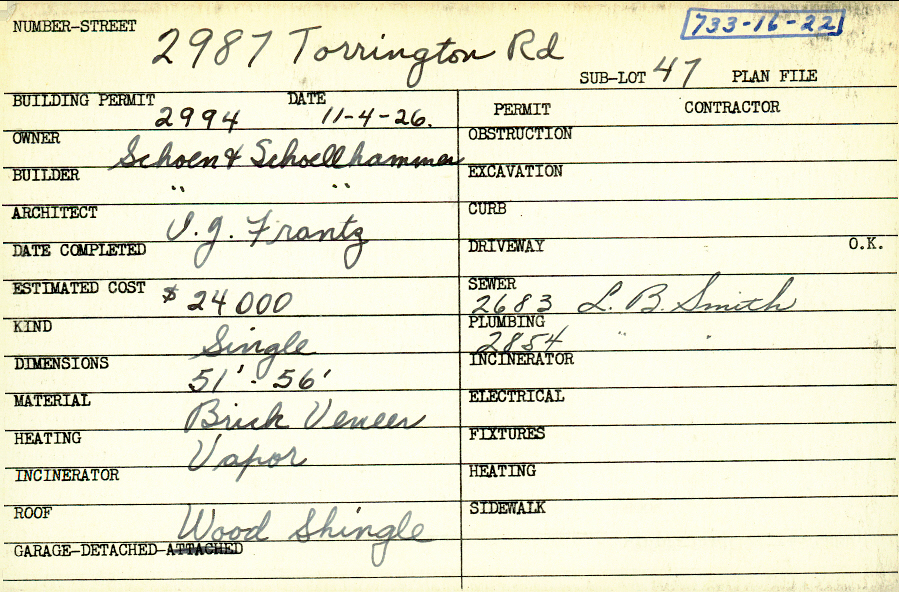 NUMBER-STREET 2987 Torrington Rd 733-16-22
SUB-LOT 47 PLAN FILE
BUILDING PERMIT 2994 DATE 11-4-26.
OWNER Schoen & Schoellhammer
BUILDER " "
ARCHITECT I. J. Frantz
DATE COMPLETED
ESTIMATED COST $24000
KIND Single
DIMENSIONS 51' - 56'
MATERIAL Brick Veneer
HEATING Vapor
INCINERATOR
ROOF Wood Shingle
GARAGE-DETACHED-ATTACHED
PERMIT CONTRACTOR
OBSTRUCTION
EXCAVATION
CURB
DRIVEWAY O.K.
SEWER 2683 L. B. Smith
PLUMBING 2854 " "
INCINERATOR
ELECTRICAL
FIXTURES
HEATING
SIDEWALK